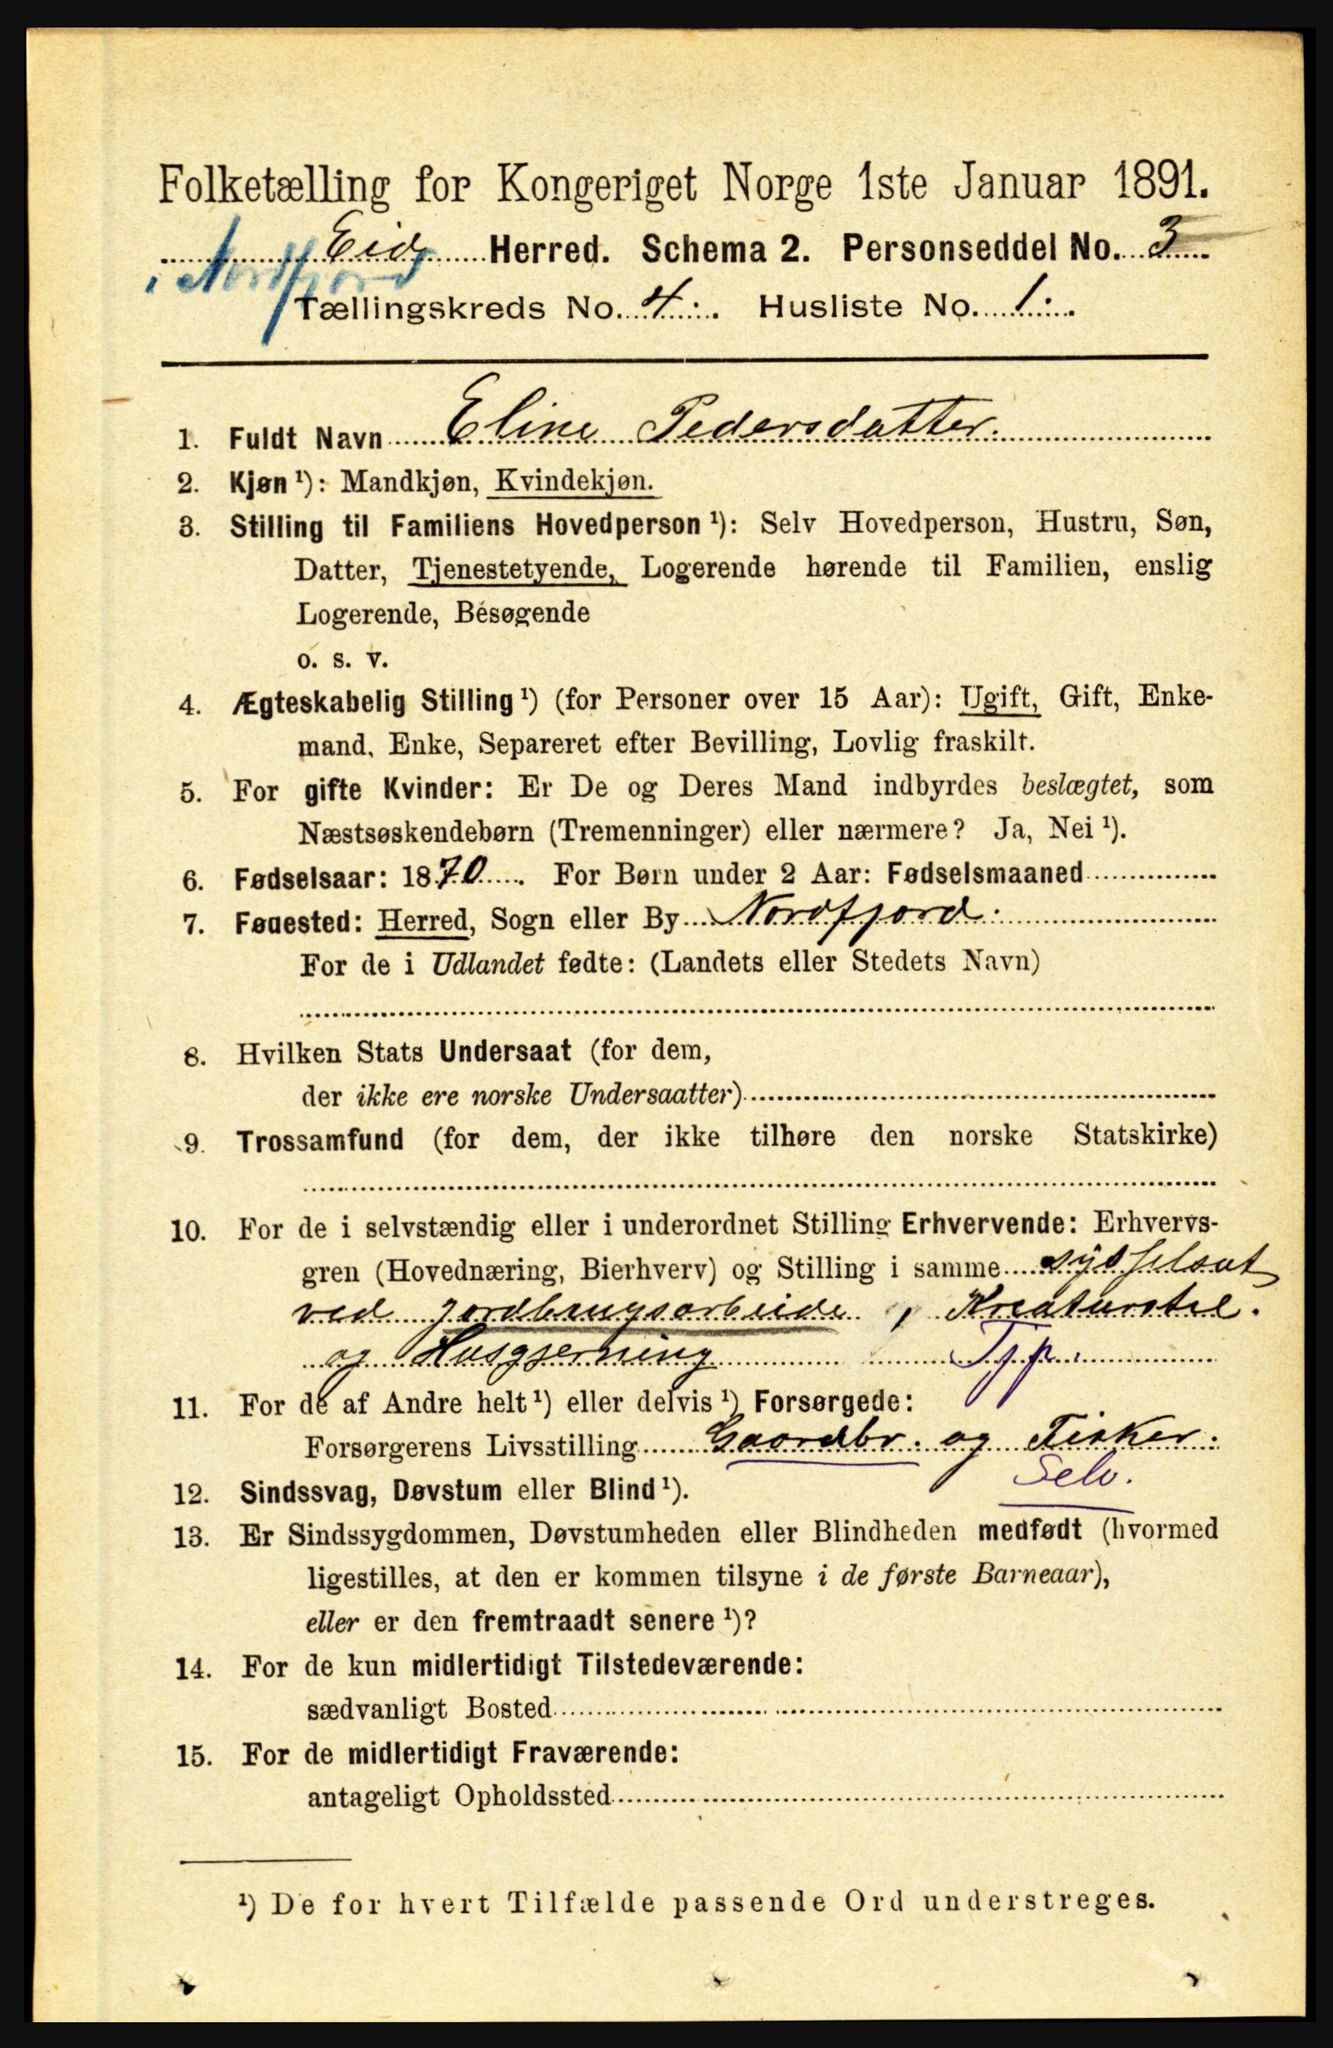 Folketælling for Kongeriget Norge 1ste Januar 1891.
Eid Herred. Schema 2. Personseddel No. 3
i Nordfjord
Tællingskreds No. 4. Husliste No. 1.
1. Fuldt Navn Eline Pedersdatter.
2. Kjøn ¹): Mandkjøn, Kvindekjøn.
3. Stilling til Familiens Hovedperson ¹): Selv Hovedperson, Hustru, Søn,
Datter, Tjenestetyende, Logerende hørende til Familien, enslig
Logerende, Besøgende
o. s. v.
4. Ægteskabelig Stilling ¹) (for Personer over 15 Aar): Ugift, Gift, Enke-
mand, Enke, Separeret efter Bevilling, Lovlig fraskilt.
5. For gifte Kvinder: Er De og Deres Mand indbyrdes beslægtet, som
Næstsøskendebørn (Tremenninger) eller nærmere? Ja, Nei ¹).
6. Fødselsaar: 1870. For Børn under 2 Aar: Fødselsmaaned
7. Føuested: Herred, Sogn eller By Nordfjord.
For de i Udlandet fødte: (Landets eller Stedets Navn)
8. Hvilken Stats Undersaat (for dem,
der ikke ere norske Undersaatter)
9. Trossamfund (for dem, der ikke tilhøre den norske Statskirke)
10. For de i selvstændig eller i underordnet Stilling Erhvervende: Erhvervs-
gren (Hovednæring, Bierhverv) og Stilling i samme sysselsat
ved jordbrugsarbeide, Kreaturstel.
og Husgjerning Tjp.
11. For de af Andre helt ¹) eller delvis ¹) Forsørgede:
Forsørgerens Livsstilling Gaardbr. og Fisker.
Selv.
12. Sindssvag, Døvstum eller Blind ¹).
13. Er Sindssygdommen, Døvstumheden eller Blindheden medfødt (hvormed
ligestilles, at den er kommen tilsyne i de første Barneaar),
eller er den fremtraadt senere ¹)?
14. For de kun midlertidigt Tilstedeværende:
sædvanligt Bosted
15. For de midlertidigt Fraværende:
antageligt Opholdssted
¹) De for hvert Tilfælde passende Ord understreges.